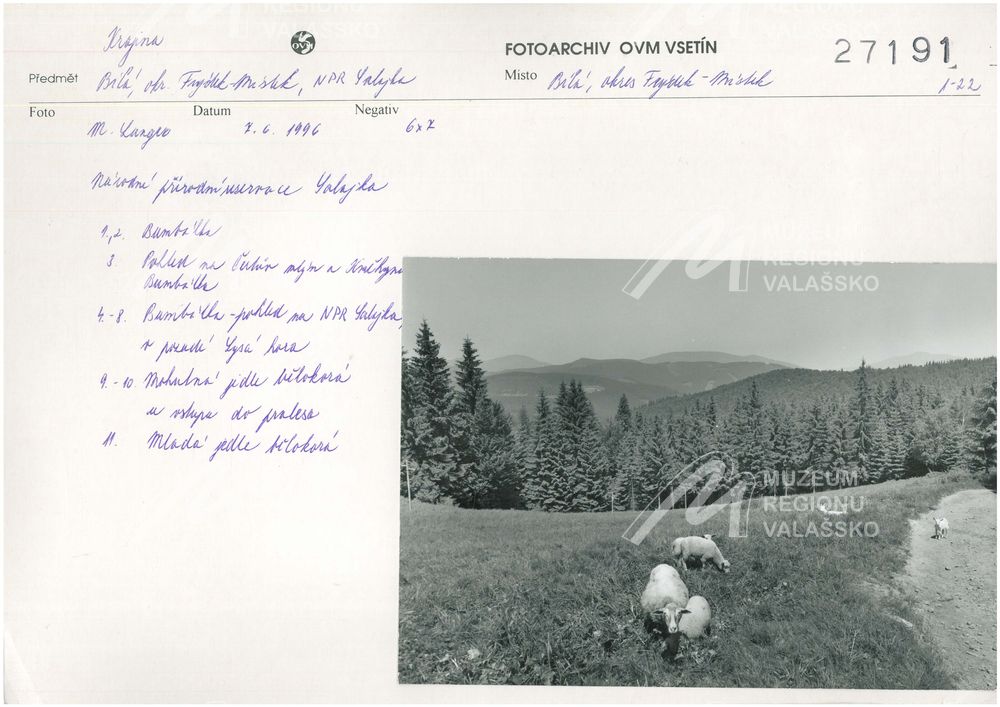 Krajina
OVM
FOTOARCHIV OVM VSETÍN
27191
Předmět Bílá, okr. Frýdek-Místek, NPR Salajka
Místo Bílá, okres Frýdek-Místek
1-22
Foto Datum Negativ
M. Langer 7. 6. 1996 6x7
Národní přírodní rezervace Salajka
1.,2. Bumbálka
3. Pohled na Čertův mlýn a Kněhyni
Bumbálka
4.-8. Bumbálka - pohled na NPR Salajka,
v pozadí Lysá hora
9.-10. Mohutná jedle bělokorá
u vstupu do pralesa
11. Mladá jedle bělokorá
REGIONU
VALAŠSKO
MUZEUM
REGIONU
VALAŠSKO